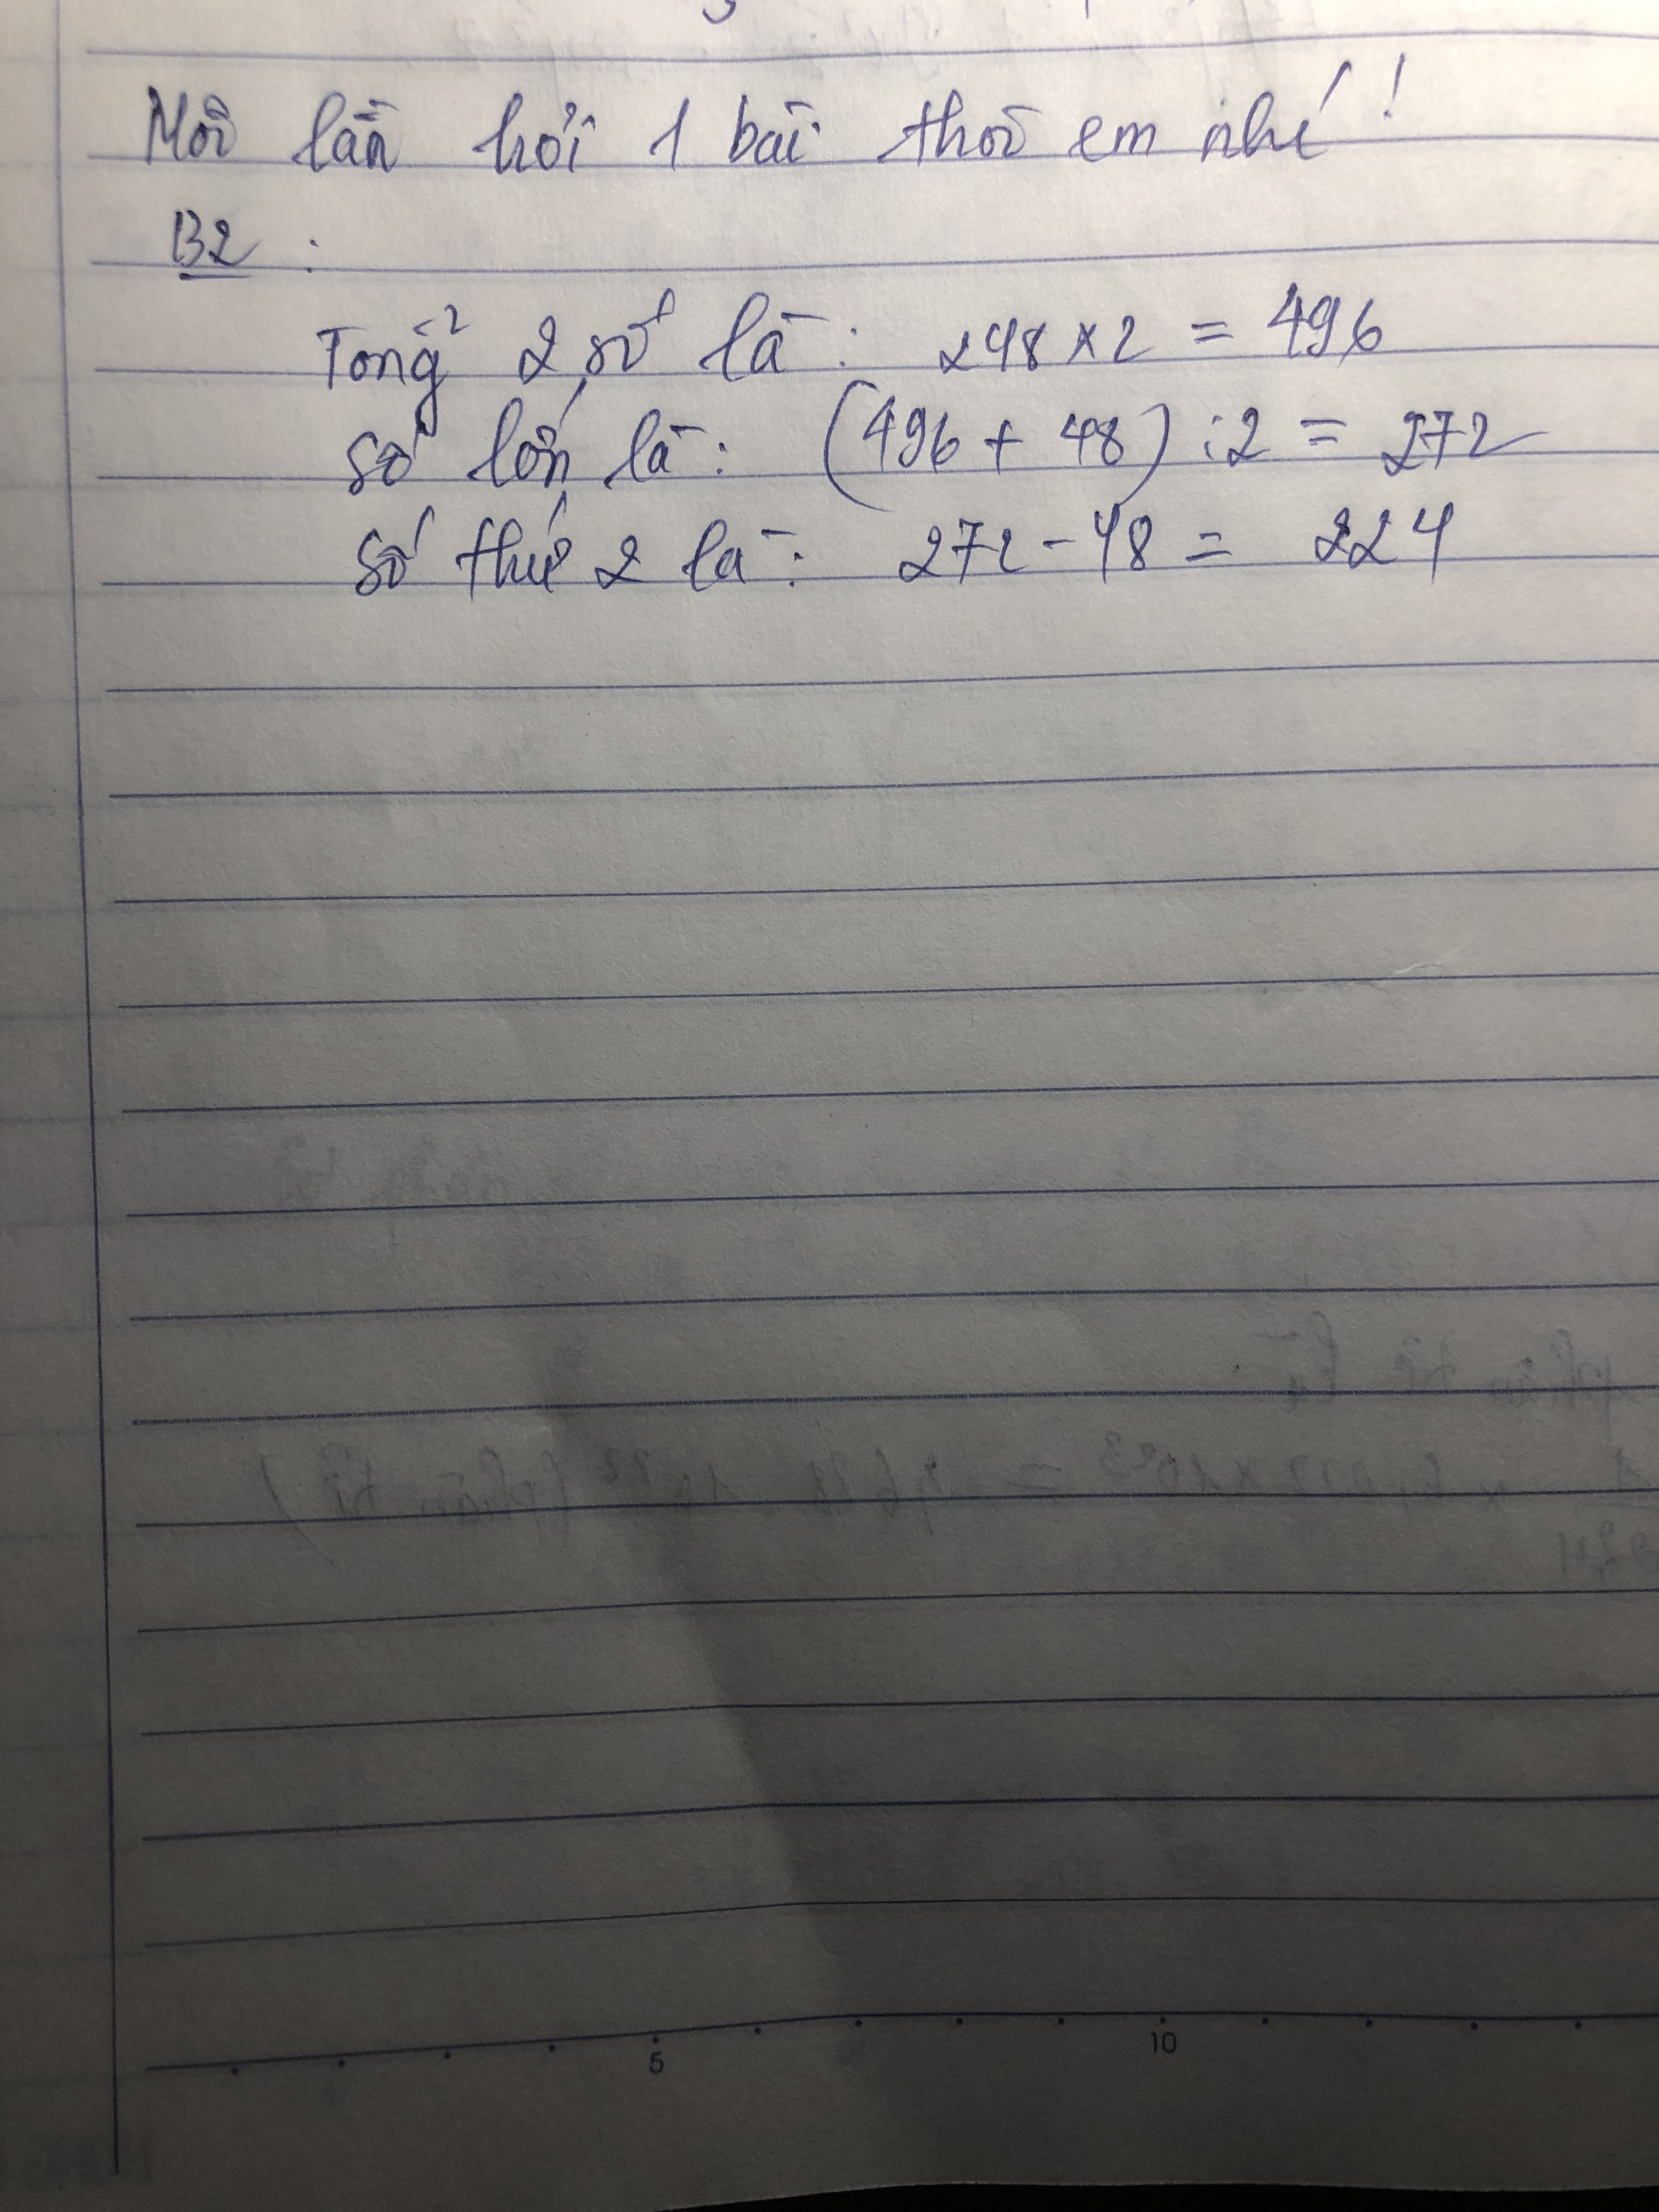 Mỗi lần hỏi 1 bài thôi em nhé!
B2 :
Tổng 2 số là : 248 x 2 = 496
số lớn là : (496 + 48) : 2 = 272
số thứ 2 là : 272 - 48 = 224
5 10